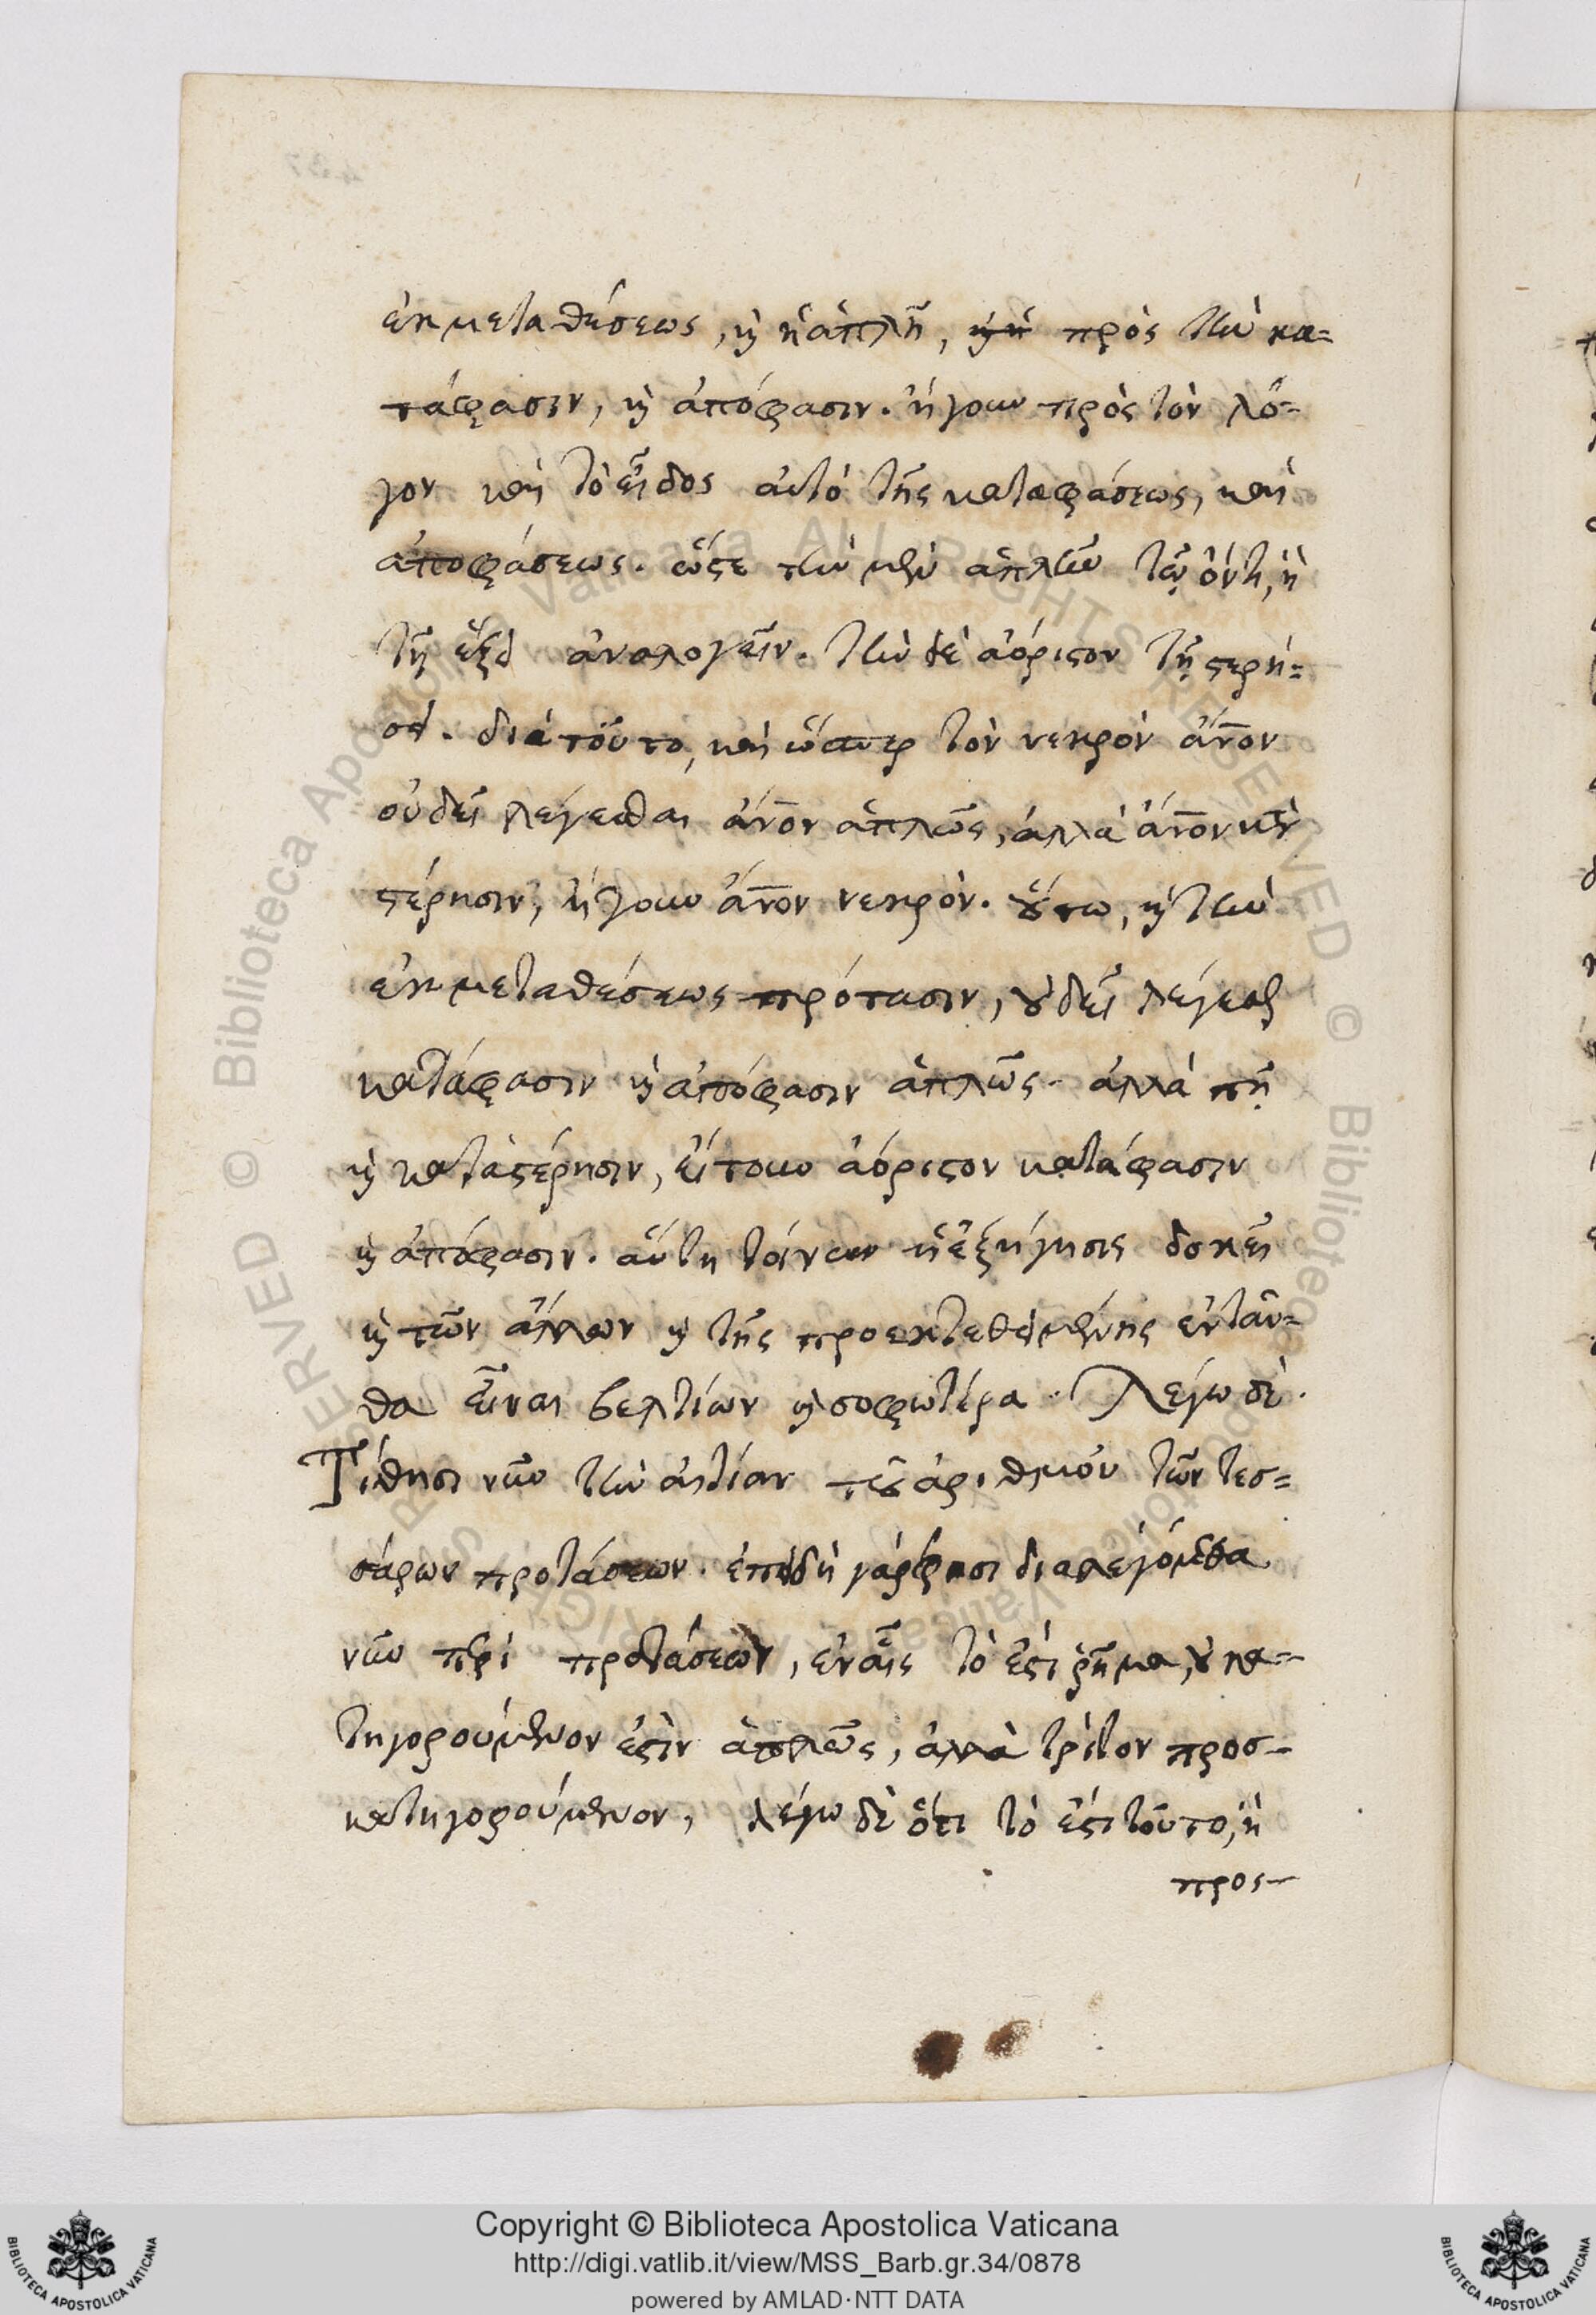 ἐκ μεταθέσεως, ϗ ἡ ἁπλῆ, πρὸς τὴν κα=
τάφασιν, ϗ ἀπόφασιν. ἤγουν πρὸς τὸν λό=
γον καὶ τὸ εἶδος αὐτὸ τῆς καταφάσεως, καὶ
ἀποφάσεως. ὥςε τὴν μὲν ἁπλῆν τῷ ὄντι, ἢ
τῇ ἕξει ἀναλογεῖν. τὴν δὲ ἀόριςον τῇ ςερή=
σει. διὰ τοῦτο, καὶ ὥσπερ τὸν νεκρὸν ἄνον
οὐ δεῖ λέγεσθαι ἄνον ἁπλῶς, ἀλλὰ ἄνον κτ
ςέρησιν, ἤγουν ἄνον νεκρὸν. ȣ̔́τω, ϗ τὴν
ἐκ μεταθέσεως πρότασιν, ȣ̓ δεῖ λέγεσθαι
κατάφασιν ϗ ἀπόφασιν ἁπλῶς. ἀλλὰ πῇ
ϗ κατὰ ςέρησιν, εἴτουν ἀόριςον κατάφασιν
ϗ ἀπόφασιν. αὕτη τοίνυν ἡ ἐξήγησις δοκεῖ
ϗ τῶν ἄλλων ϗ τῆς προεκτεθειμένης ἐνταῦ=
θα εἶναι βελτίων ϗ σοφωτέρα. Λέγω δὲ.
Τίθησι νῦν τὴν αἰτίαν τȣ͂ ἀριθμοῦ τῶν τεσ=
σάρων προτάσεων. ἐπειδὴ γάρ φησι διαλεγόμεθα
νῦν περὶ προτάσεων, ἐν αἷς τὸ ἔςι ῥῆμα, ȣ̓ κα-
τηγορούμενον ἐςὶν ἁπλῶς, ἀλλὰ τρίτον προσ-
κατηγορούμενον, λέγω δὲ ὅτι τὸ ἔςι τοῦτο, ἢ
προσ-
Copyright © Biblioteca Apostolica Vaticana
http://digi.vatlib.it/view/MSS_Barb.gr.34/0878
powered by AMLAD·NTT DATA